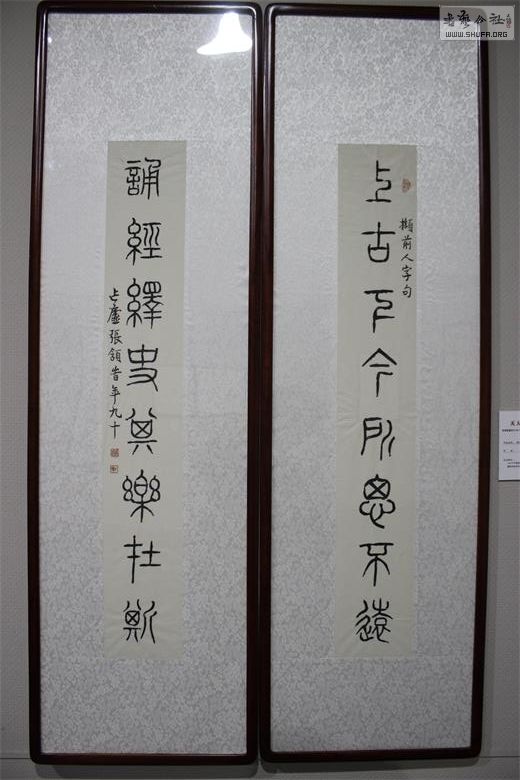 书艺公社
WWW.SHUFA.ORG
上古下今所思不遠
擷前人字句
誦經繹史其樂在斯
乍廬張頷旹年九十